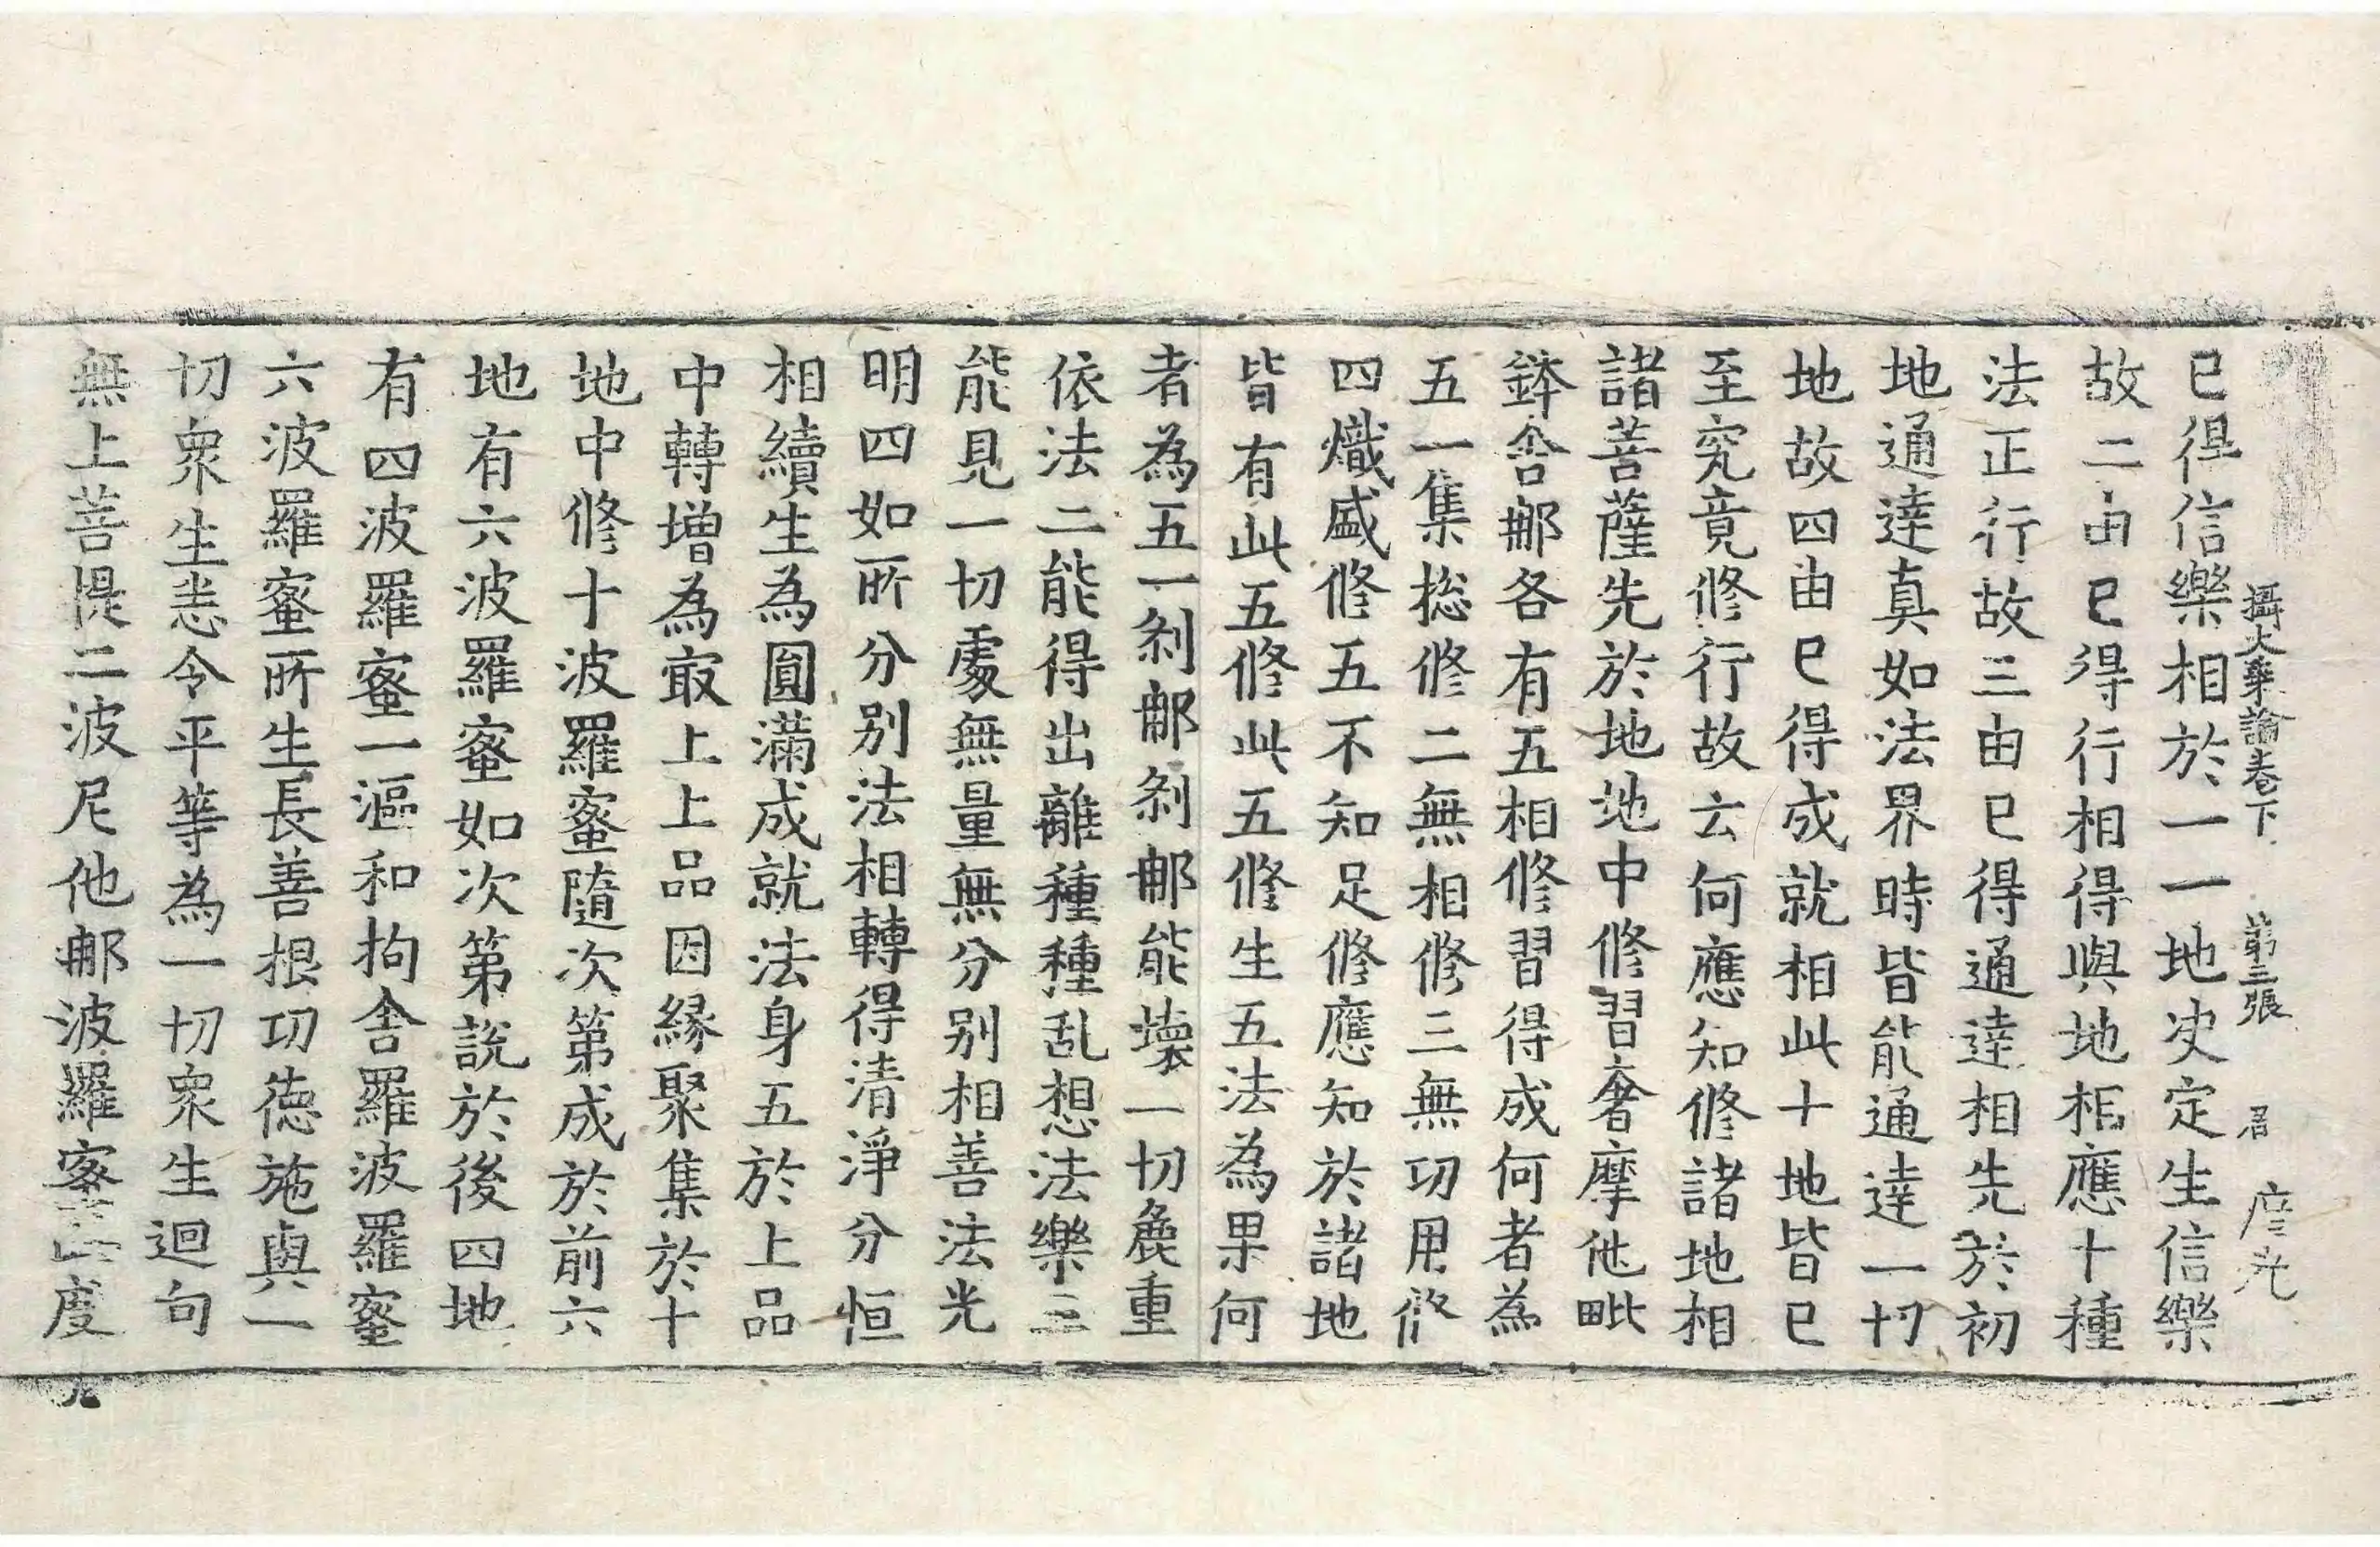 攝大乗論卷下 第三張 君 庭光
已得信樂相於一一地决定生信樂
故二由已得行相得與地相應十種
法正行故三由已得通達相先於初
地通達真如法界時皆能通達一切
地故四由已得成就相此十地皆已
至究竟修行故云何應知修諸地相
諸菩薩先於地地中修習奢摩他毗
鉢舍那各有五相修習得成何者為
五一集捴修二無相修三無功用修
四熾盛修五不知足修應知於諸地
皆有此五修此五修生五法為果何
者為五一刹那刹那能壞一切麁重
依法二能得出離種種乱想法樂三
能見一切處無量無分别相善法光
明四如所分别法相轉得清淨分恒
相續生為圓滿成就法身五於上品
中轉增為㝡上上品因緣聚集於十
地中修十波羅蜜隨次第成於前六
地有六波羅蜜如次第說於後四地
有四波羅蜜一漚和拘舍羅波羅蜜
六波羅蜜所生長善根功德施與一
切衆生悉令平等為一切衆生迴向
無上菩提二波尼他那波羅蜜度
九